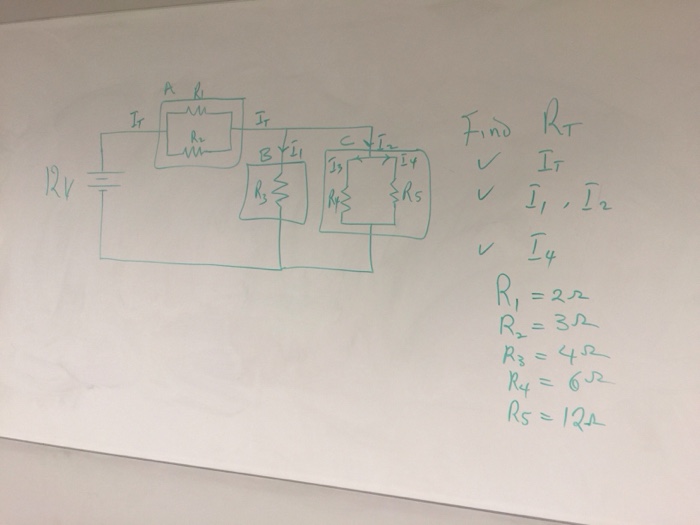 A R₁
I_T I_T
R₂
12V
B I₁ C I₂
I₃ I₄
R₃ R₄ R₅
Find R_T
✓ I_T
✓ I₁, I₂
✓ I₄
R₁ = 2Ω
R₂ = 3Ω
R₃ = 4Ω
R₄ = 6Ω
R₅ = 12Ω